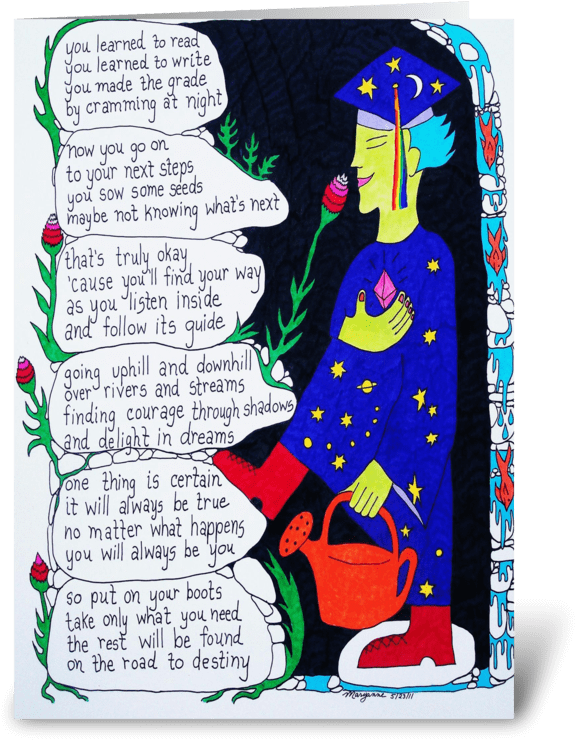 you learned to read
you learned to write
you made the grade
by cramming at night
now you go on
to your next steps
you sow some seeds
maybe not knowing what's next
that's truly okay
'cause you'll find your way
as you listen inside
and follow its guide
going uphill and downhill
over rivers and streams
finding courage through shadows
and delight in dreams
one thing is certain
it will always be true
no matter what happens
you will always be you
so put on your boots
take only what you need
the rest will be found
on the road to destiny
Maryanne 5/23/11